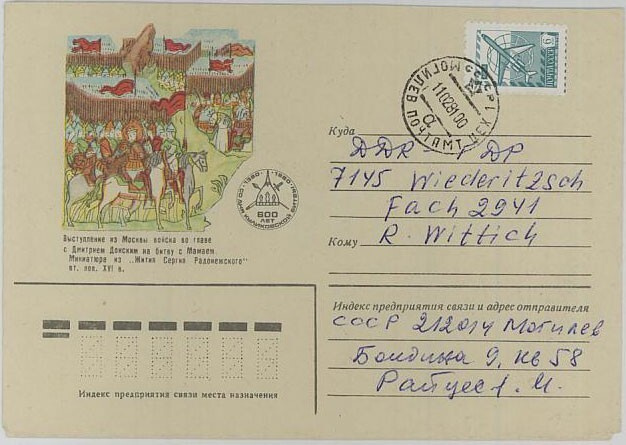 6
ПОЧТА СССР
МОГИЛЕВ ПОЧТАМТ ЦЕХ
Куда
DDR - ГДР
7145 Wiederitzsch
Fach 2941
Кому R. Wittich
1380 1980
СО ДНЯ КУЛИКОВСКОЙ БИТВЫ
600
ЛЕТ
Выступление из Москвы войска во главе
с Дмитрием Донским на битву с Мамаем.
Миниатюра из „Жития Сергия Радонежского"
вт. пол. XVI в.
Индекс предприятия связи и адрес отправителя
СССР 212014 Могилев
9, кв 58
Индекс предприятия связи места назначения